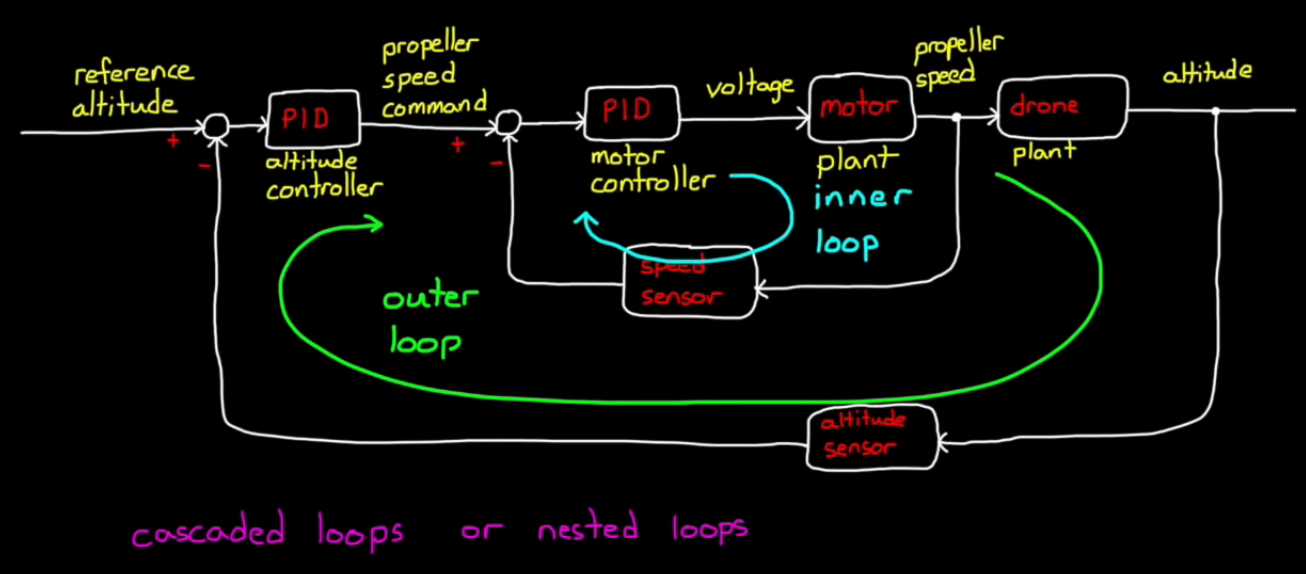 reference
altitude
+
-
PID
altitude
controller
propeller
speed
command
+
-
PID
motor
controller
voltage
motor
plant
propeller
speed
drone
plant
altitude
inner
loop
speed
sensor
outer
loop
altitude
sensor
cascaded loops or nested loops